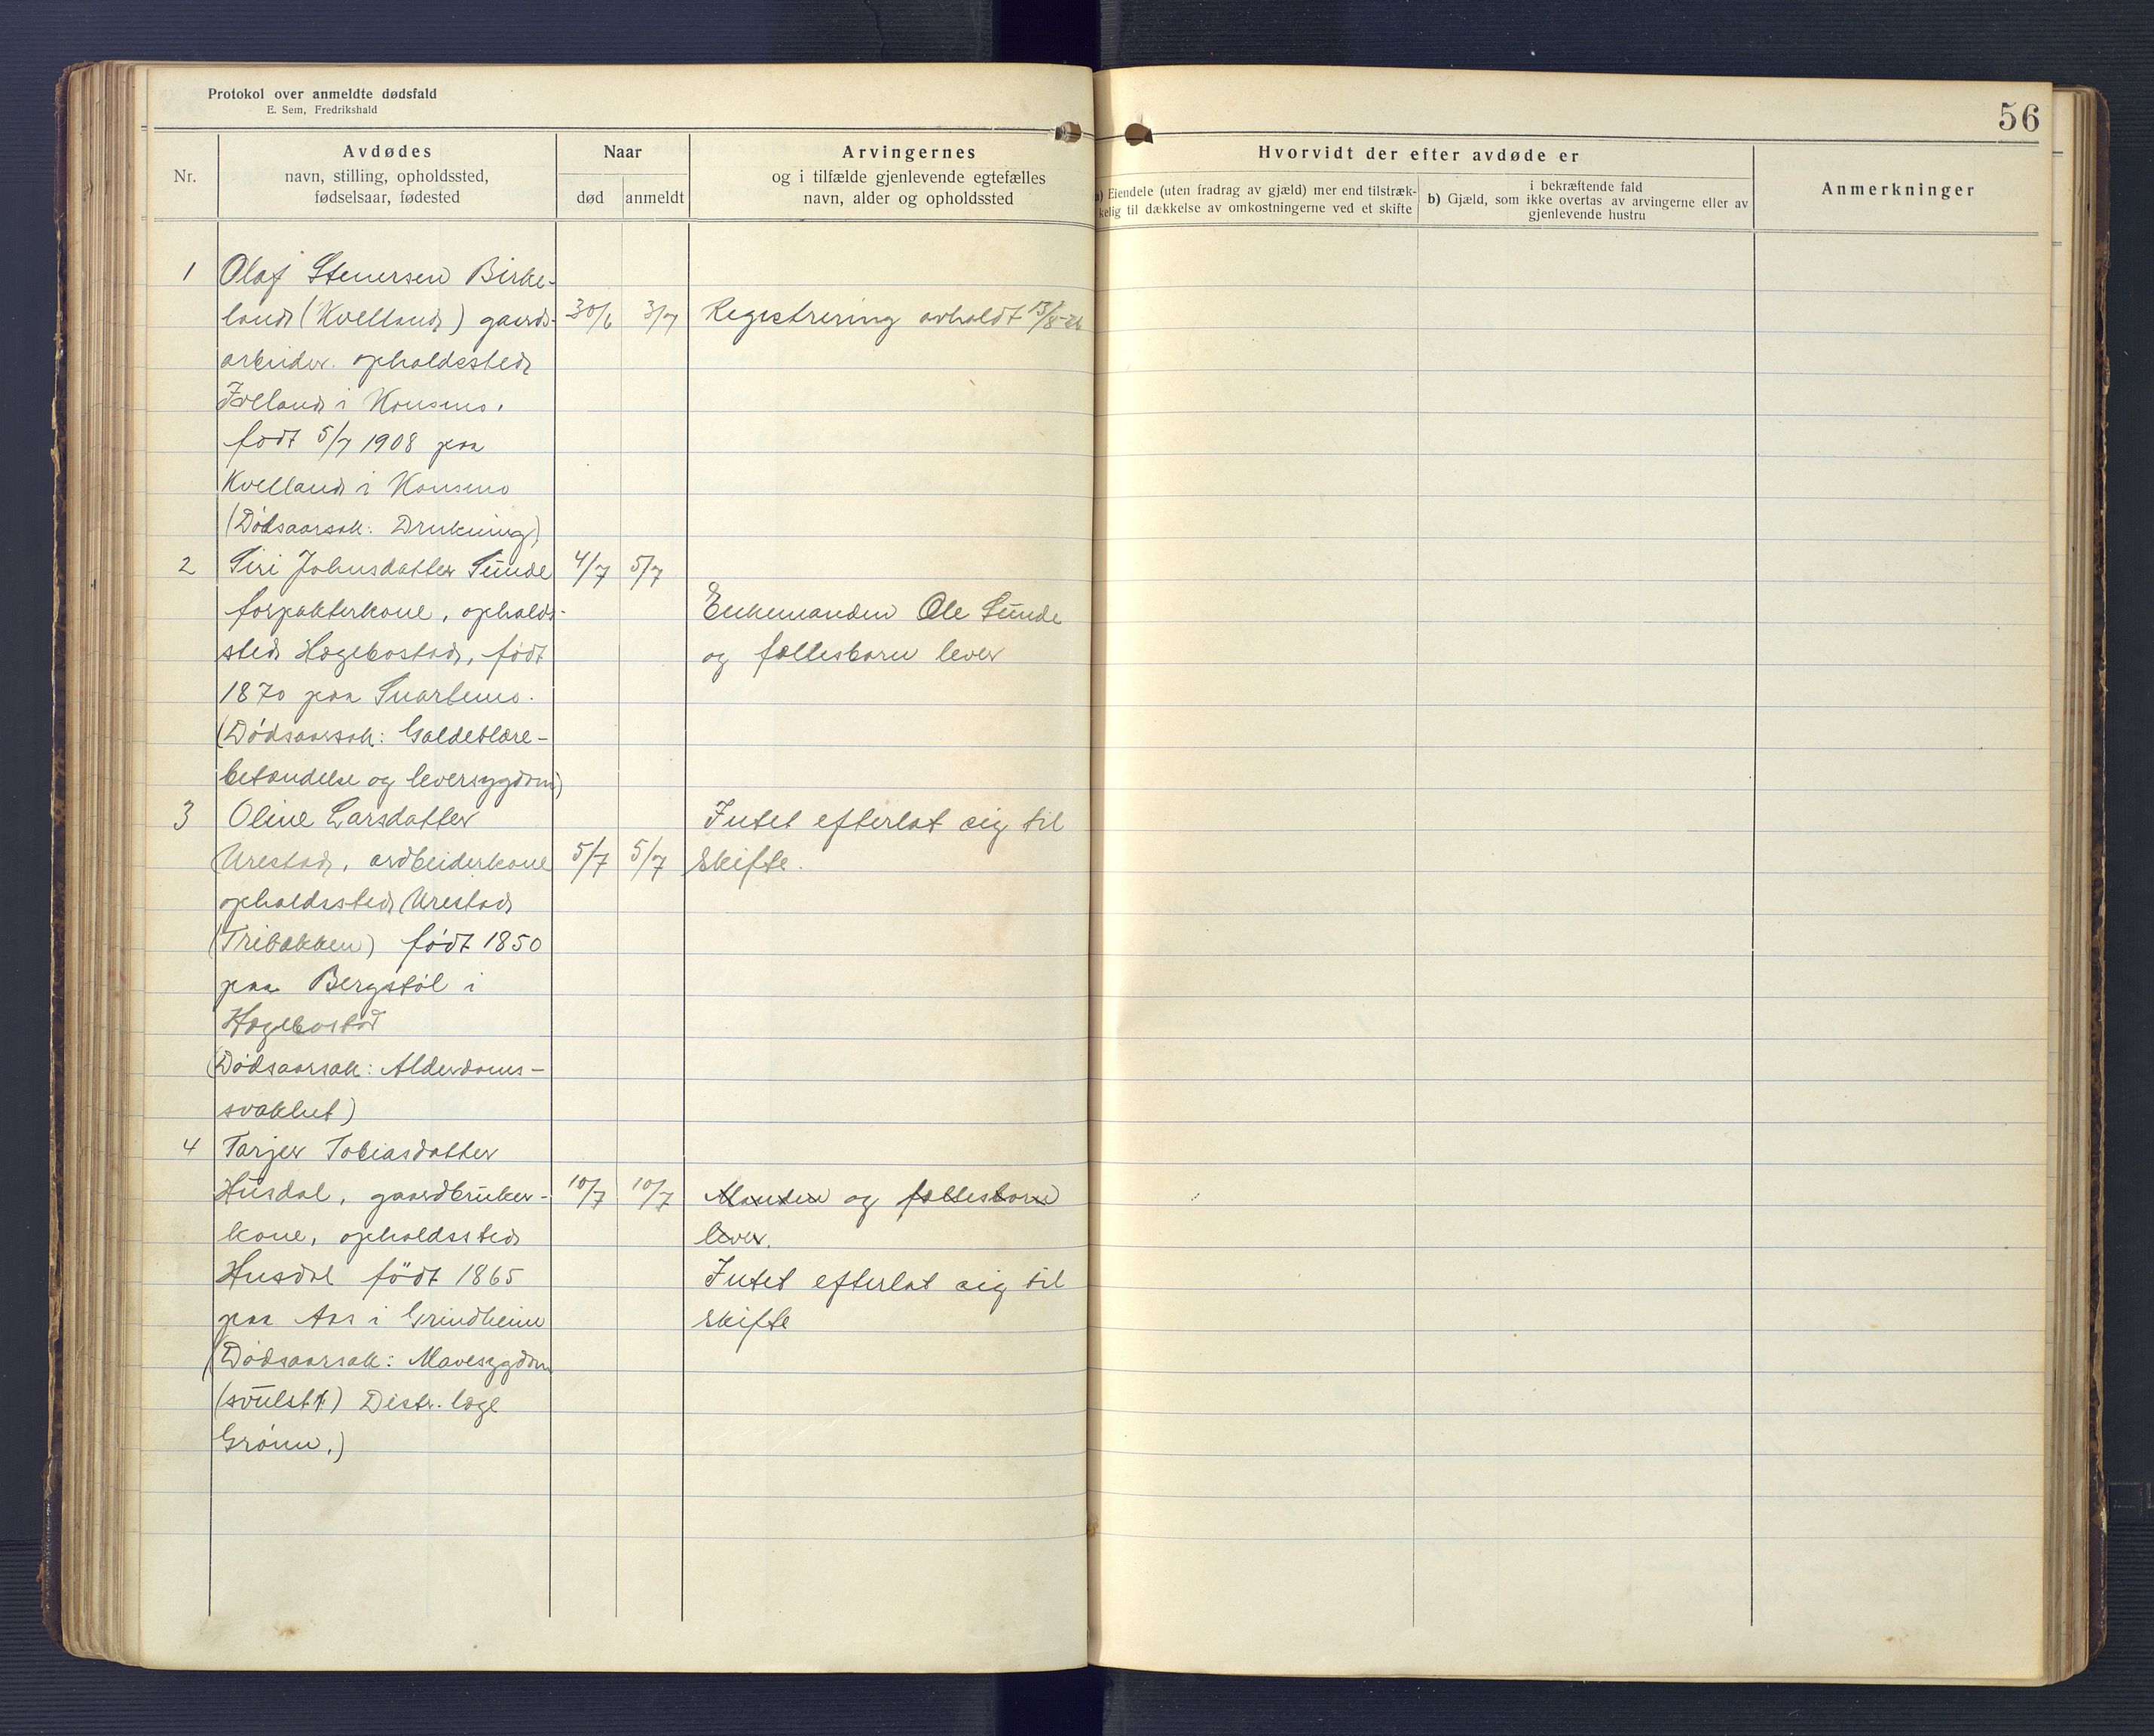 Protokol over anmeldte dødsfald
E. Sem, Fredrikshald
56
Nr.
Avdødes
navn, stilling, opholdssted,
fødselsaar, fødested
Naar
død
anmeldt
Arvingernes
og i tilfælde gjenlevende egtefælles
navn, alder og opholdssted
Hvorvidt der efter avdøde er
a) Eiendele (uten fradrag av gjæld) mer end tilstræk-
kelig til dækkelse av omkostningerne ved et skifte
i bekræftende fald
b) Gjæld, som ikke overtas av arvingerne eller av
gjenlevende hustru
Anmerkninger
1 Olaf Stenersen Birke-
land (Kvelland) gaards- 30/6 3/7 Registrering avholdt 13/8-26
arbeider. opholdssted
i Konsmo.
født 5/7 1908 paa
Kvelland i Konsmo
(Dødsaarsak: Drukning)
2 Siri Johnsdatter Sunde 4/7 5/7
forpakterkone, opholds- Enkemanden Ole Sunde
sted Hægebostad, født og fællesbarn lever
1870 paa Snartemo.
(Dødsaarsak: Galdeblære-
betændelse og leversygdom)
3 Oline Larsdatter Intet efterlat sig til
Urestad, ardbeiderkone 5/7 5/7 skifte.
opholdssted Urestad
(Tribakken) født 1850
paa Bergstøl i
Hægebostad
(Dødsaarsak: Alderdoms-
svakhet)
4 Tarjer Tobiasdatter
Husdal, gaardbruker- 10/7 10/7 Manden og fællesbarn
kone, opholdssted lever.
Husdal født 1865 Intet efterlat sig til
paa Aas i Grindheim skifte
(Dødsaarsak: Mavesygdom
(svulst) Distr. læge
Grønn.)